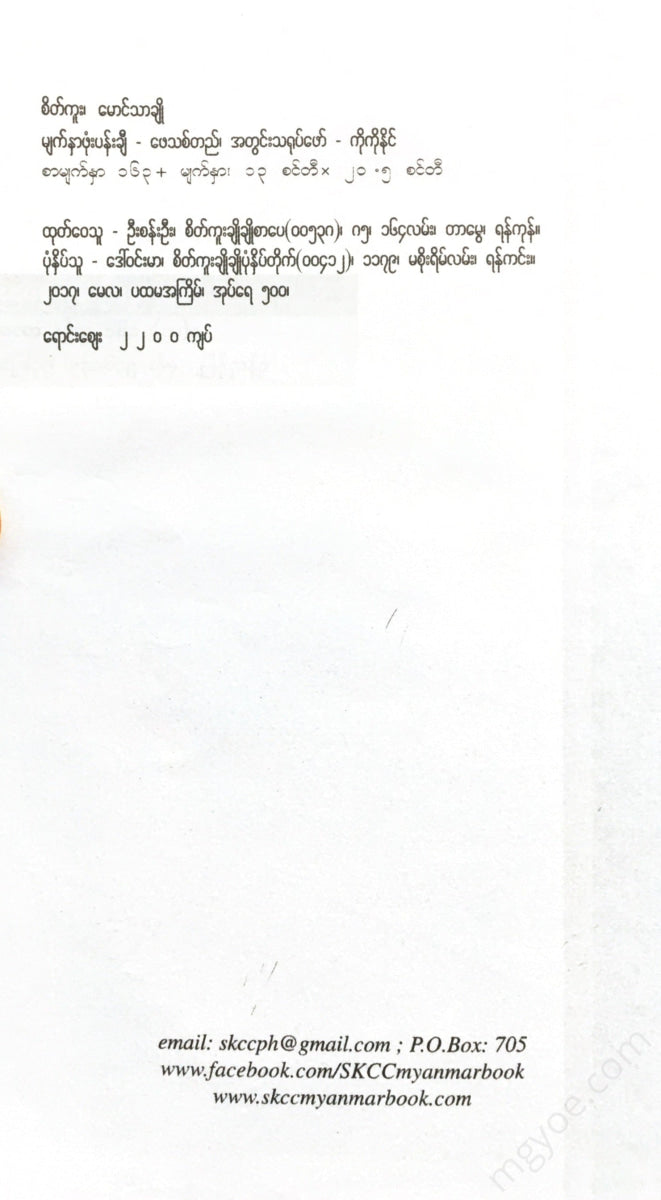 စိတ်ကူး၊ မောင်သာချို
မျက်နှာဖုံးပန်းချီ - ဖေသစ်တည်၊ အတွင်းသရုပ်ဖော် - ကိုကိုနိုင်
စာမျက်နှာ ၁၆၃+ မျက်နှား ၁၃ စင်တီ× ၂၀.၅ စင်တီ
ထုတ်ဝေသူ - ဦးစန်းဦး၊ စိတ်ကူးချိုချိုစာပေ(၀၀၅၃၈)၊ ဂ၅၊ ၁၆၄လမ်း၊ တာမွေ၊ ရန်ကုန်။
ပုံနှိပ်သူ - ဒေါ်ဝင်းမာ၊ စိတ်ကူးချိုချိုပုံနှိပ်တိုက်(၀၀၄၁၂)၊ ၁၁၇၉၊ မစိုးရိမ်လမ်း၊ ရန်ကင်း။
၂၀၁၇၊ မေလ၊ ပထမအကြိမ်၊ အုပ်ရေ ၅၀၀၊
ရောင်းဈေး ၂၂၀၀ ကျပ်
email: skccph@gmail.com ; P.O.Box: 705
www.facebook.com/SKCCmyanmarbook
www.skccmyanmarbook.com
mgyoe.com